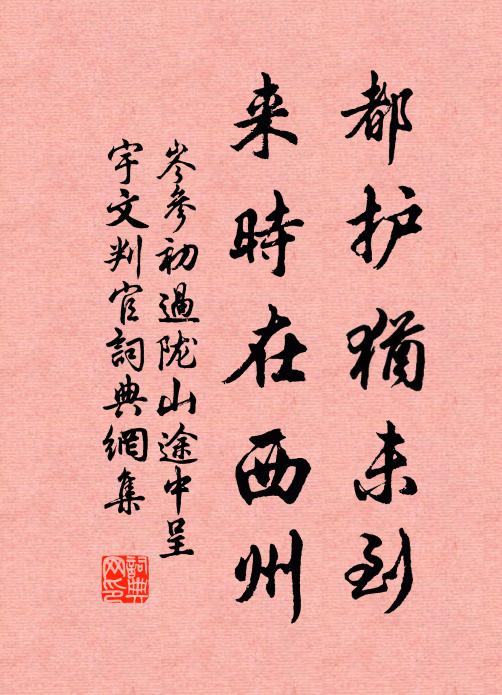 都护猶未到
来時在西州
岑參初過陇山途中呈
宇文判官詞典網集
詞典
网印